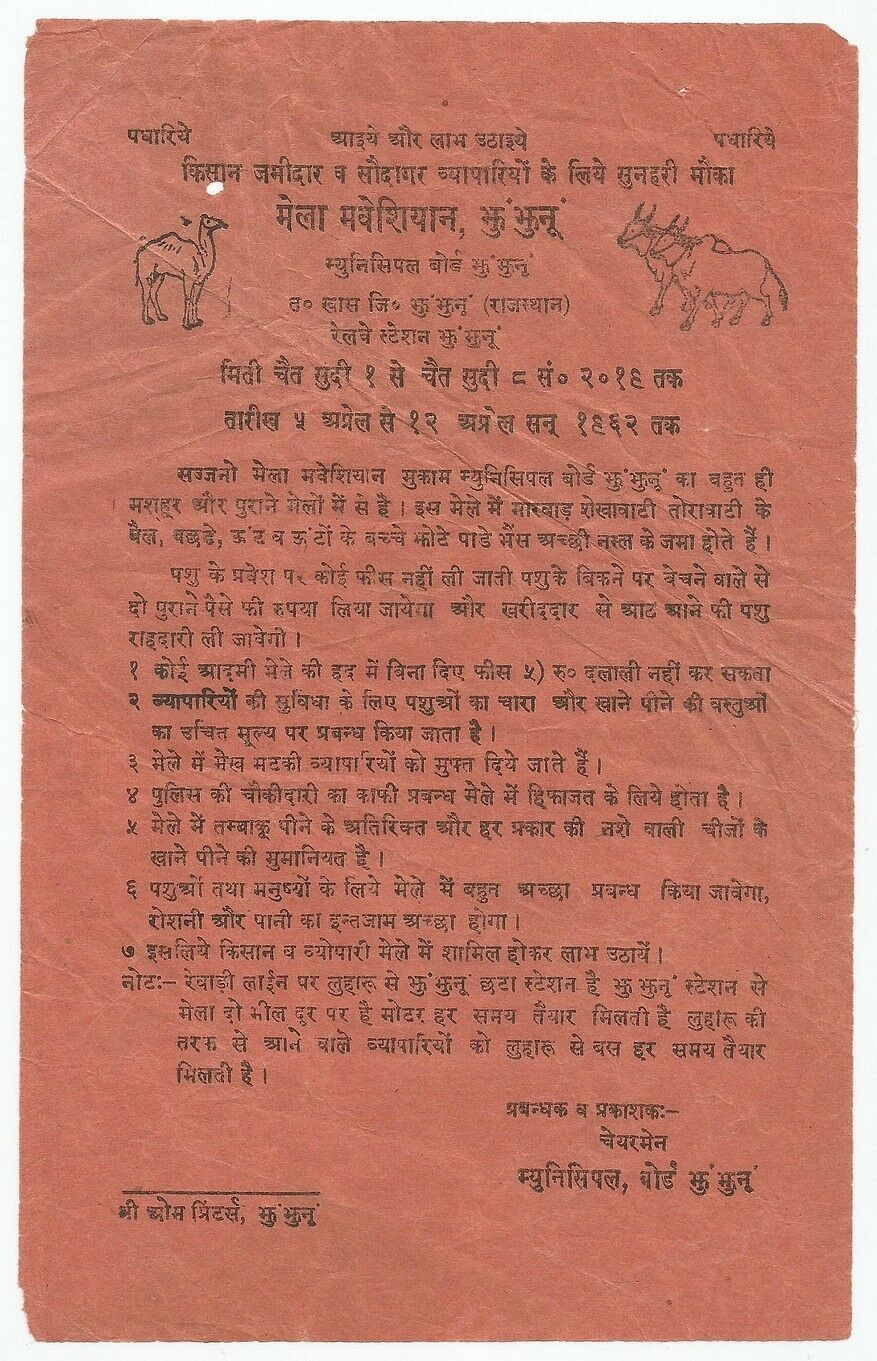 पधारिये आइये और लाभ उठाइये पधारिये
किसान जमीदार व सौदागर व्यापारियों के लिये सुनहरी मौका
मेला मवेशियान, झुंझुनूं
म्युनिसिपल बोर्ड झुंझुनूं
त० खास जि० झुंझुनूं (राजस्थान)
रेलवे स्टेशन झुंझुनूं
मिती चैत सुदी १ से चैत सुदी ८ सं० २०१९ तक
तारीख ५ अप्रेल से १२ अप्रेल सन् १९६२ तक
सज्जनो मेला मवेशियान मुकाम म्युनिसिपल बोर्ड झुंझुनूं का बहुत ही
मशहूर और पुराने मेलों में से है । इस मेले में मारवाड़ शेखावाटी तोरावाटी के
बैल, बछडे, ऊंट व ऊंटों के बच्चे झोटे पाडे भैंस अच्छी नस्ल के जमा होते हैं ।
पशु के प्रवेश पर कोई फीस नहीं ली जाती पशुके बिकने पर बेचने वाले से
दो पुराने पैसे फी रुपया लिया जायेगा और खरीददार से आठ आने फी पशु
राहदारी ली जावेगी ।
१ कोई आदमी मेले की हद में बिना दिए फीस ५) रु० दलाली नहीं कर सकता
२ व्यापारियों की सुविधा के लिए पशुओं का चारा और खाने पीने की वस्तुओं
का उचित मूल्य पर प्रबन्ध किया जाता है ।
३ मेले में मेख मटकी व्यापारियों को मुफ्त दिये जाते हैं ।
४ पुलिस की चौकीदारी का काफी प्रबन्ध मेले में हिफाजत के लिये होता है ।
५ मेले में तम्बाकू पीने के अतिरिक्त और हर प्रकार की नशे वाली चीजों के
खाने पीने की मुमानियत है ।
६ पशुओं तथा मनुष्यों के लिये मेले में बहुत अच्छा प्रबन्ध किया जावेगा,
रोशनी और पानी का इन्तजाम अच्छा होगा ।
७ इसलिये किसान व व्योपारी मेले में शामिल होकर लाभ उठायें ।
नोटः– रेवाड़ी लाईन पर लुहारू से झुंझुनूं छटा स्टेशन है झुंझुनूं स्टेशन से
मेला दो मील दूर पर है मोटर हर समय तैयार मिलती है लुहारू की
तरफ से आने वाले व्यापारियों को लुहारू से बस हर समय तैयार
मिलती है ।
प्रबन्धक व प्रकाशकः–
चेयरमेन
म्युनिसिपल, बोर्ड झुंझुनूं
श्री ओम प्रिंटर्स, झुंझुनूं